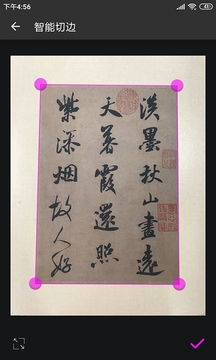 下午4:56
智能切边
淡墨秋山画远
天暮霞还照
紫添烟故人好